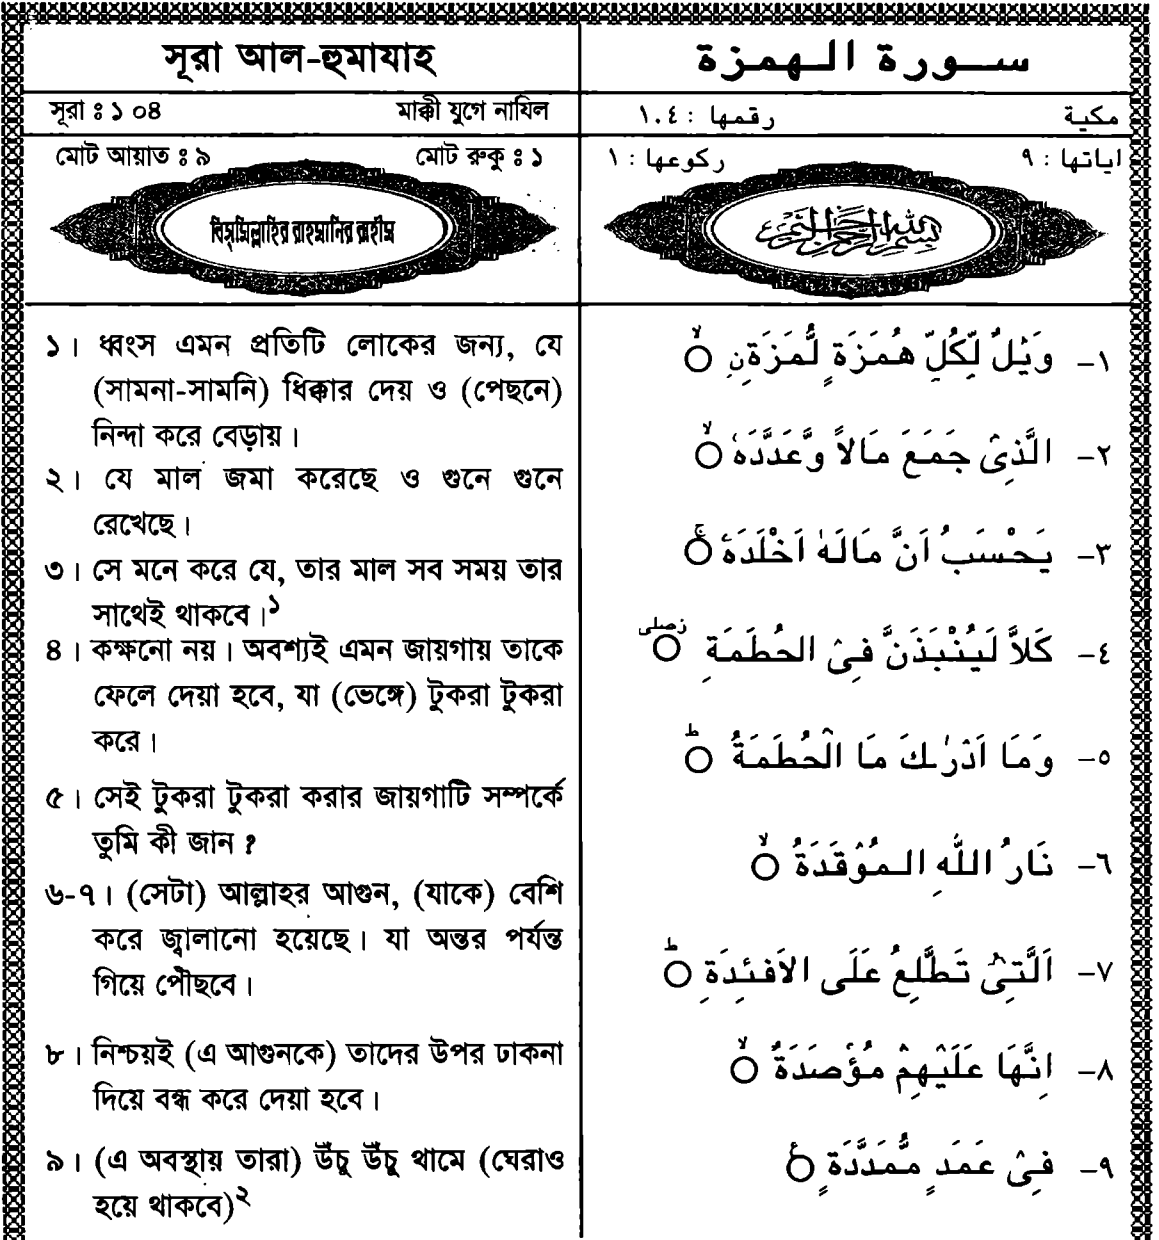 সূরা আল-হুমাযাহ
সূরা ঃ ১০৪ মাক্কী যুগে নাযিল
মোট আয়াত ঃ ৯ মোট রুকু ঃ ১
বিস্‌মিল্লাহির রাহমানির রাহীম
১। ধ্বংস এমন প্রতিটি লোকের জন্য, যে
(সামনা-সামনি) ধিক্কার দেয় ও (পেছনে)
নিন্দা করে বেড়ায়।
২। যে মাল জমা করেছে ও গুনে গুনে
রেখেছে।
৩। সে মনে করে যে, তার মাল সব সময় তার
সাথেই থাকবে।১
৪। কক্ষনো নয়। অবশ্যই এমন জায়গায় তাকে
ফেলে দেয়া হবে, যা (ভেঙ্গে) টুকরা টুকরা
করে।
৫। সেই টুকরা টুকরা করার জায়গাটি সম্পর্কে
তুমি কী জান ?
৬-৭। (সেটা) আল্লাহর আগুন, (যাকে) বেশি
করে জ্বালানো হয়েছে। যা অন্তর পর্যন্ত
গিয়ে পৌঁছবে।
৮। নিশ্চয়ই (এ আগুনকে) তাদের উপর ঢাকনা
দিয়ে বন্ধ করে দেয়া হবে।
৯। (এ অবস্থায় তারা) উঁচু উঁচু থামে (ঘেরাও
হয়ে থাকবে)২
سورة الهمزة
مكية رقمها : ١٠٤
اياتها : ٩ ركوعها : ١
بسم الله الرحمن الرحيم
١- وَيْلٌ لِّكُلِّ هُمَزَةٍ لُّمَزَةِنِ ۙ
٢- الَّذِىْ جَمَعَ مَالاً وَّعَدَّدَهٗ ۙ
٣- يَحْسَبُ اَنَّ مَالَهٗ اَخْلَدَهٗ ۚ
٤- كَلاَّ لَيُنْبَذَنَّ فِىْ الحُطَمَةِ زصلى
٥- وَمَا اَدْرٰىكَ مَا الْحُطَمَةُ ؕ
٦- نَارُ اللّٰهِ الـمُوْقَدَةُ ۙ
٧- اَلَّتِىْ تَطَّلِعُ عَلَى الاَفئِدَةِ ؕ
٨- اِنَّهَا عَلَيْهِمْ مُؤْصَدَةٌ ۙ
٩- فِىْ عَمَدٍ مُّمَدَّدَةٍ